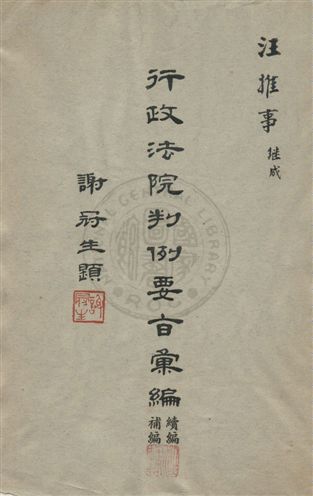 汪推事 继成
行政法院判例要旨彙編
續編
補編
謝冠生題
謝冠生